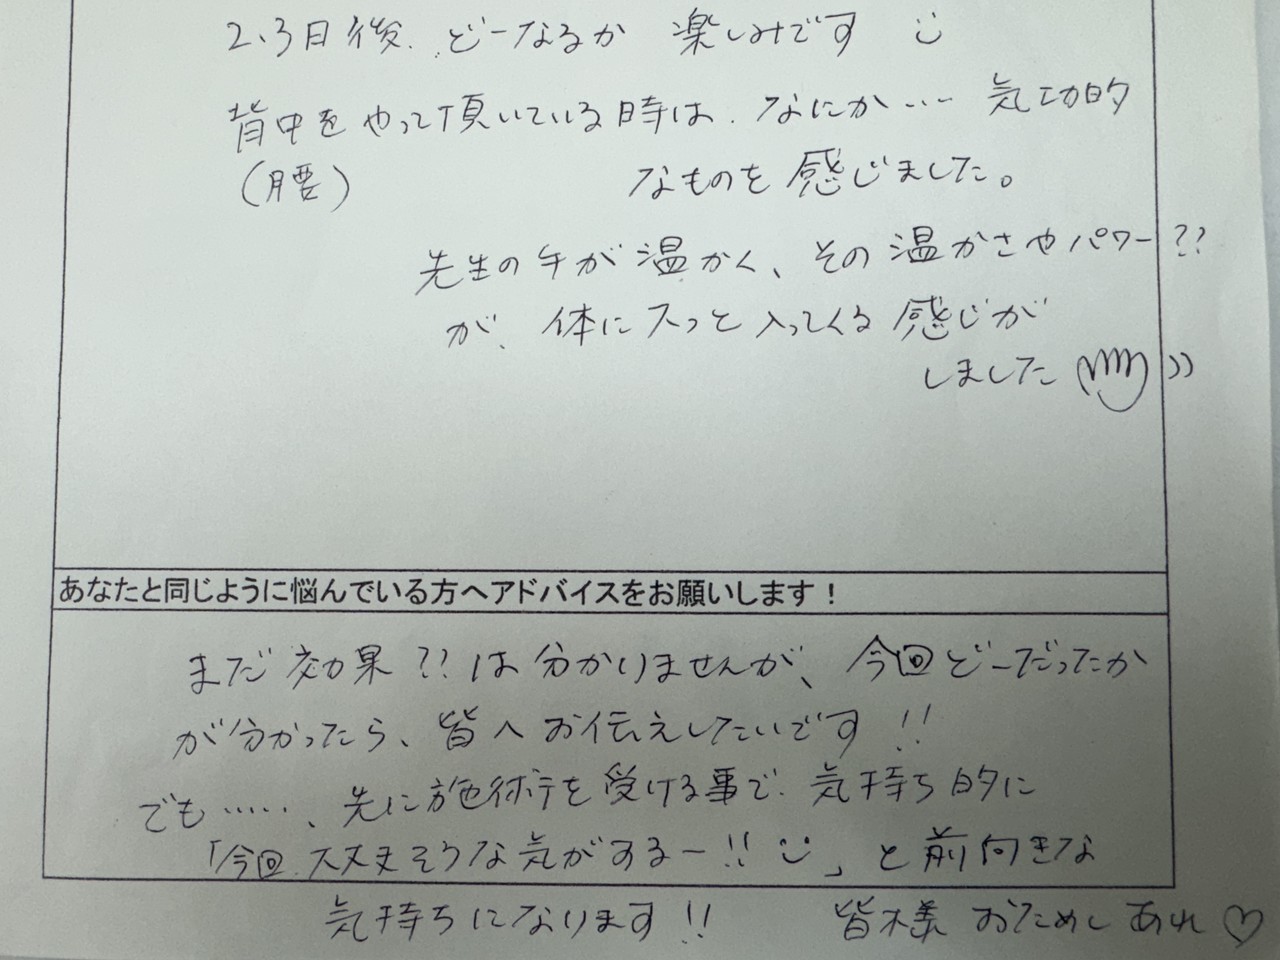 2、3日後、どーなるか 楽しみです
背中をやって頂いている時は、なにか… 気功的
(腰) なものを感じました。
先生の手が温かく、その温かさやパワー??
が、体にスっと入ってくる感じが
しました
あなたと同じように悩んでいる方へアドバイスをお願いします！
まだ効果??は分かりませんが、今回どーだったか
が分かったら、皆へお伝えしたいです!!
でも……、先に施術を受ける事で、気持ち的に
「今回、大丈夫そうな気がするー!!」と前向きな
気持ちになります!! 皆様 おためしあれ♡